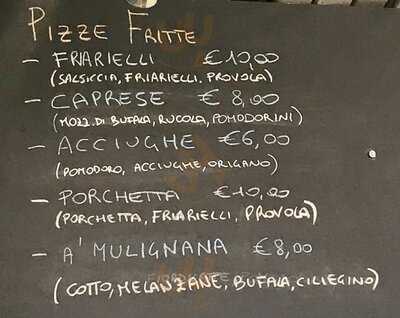 PIZZE FRITTE
- FRIARIELLI €10,00
(SALSICCIA, FRIARIELLI, PROVOLA)
- CAPRESE € 8,00
(MOZZ. DI BUFALA, RUCOLA, POMODORINI)
- ACCIUGHE €6,00
(POMODORO, ACCIUGHE, ORIGANO)
- PORCHETTA €10,00
(PORCHETTA, FRIARIELLI, PROVOLA)
- A' MULIGNANA €8,00
(COTTO, MELANZANE, BUFALA, CILIEGINO)